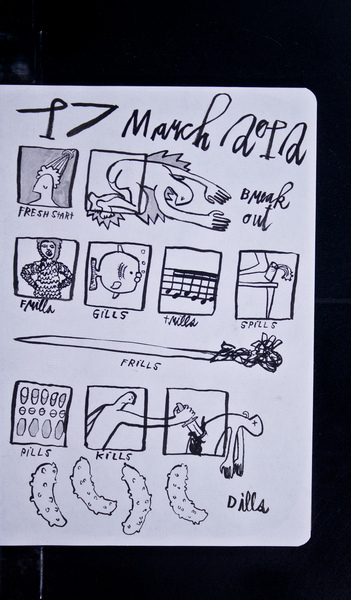 17 March 2012
FRESH START
Break
out
Emilla
GILLS
trills
SPILLS
FRILLS
PILLS
KILLS
Dills